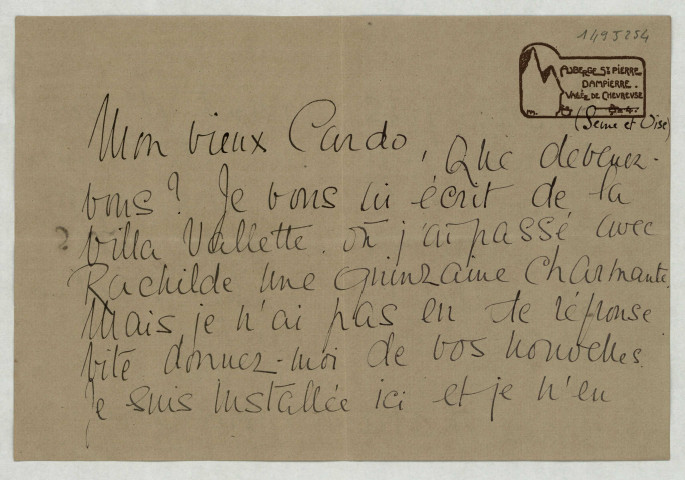 149J254
AUBERGE St PIERRE
DAMPIERRE.
VALÉE DE CHEVREUSE
(Seine et Oise)
Mon vieux Cardo, Que devenez-
vous? Je vous ai écrit de la
villa Vallette où j'ai passé avec
Rachilde une quinzaine charmante.
Mais je n'ai pas eu de réponse
vite donnez-moi de vos nouvelles.
Je suis installée ici et je n'en